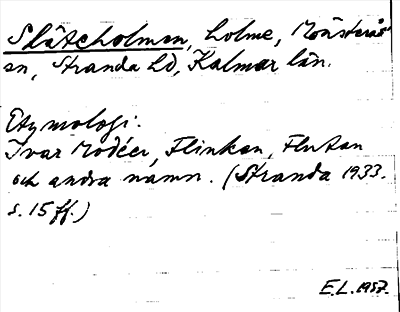 Slätcholmen, holme, Mönsterås
sn, Stranda hd, Kalmar län.
Etymologi:
Ivar Modéer, Flinkan, Flutan
och andra namn. (Stranda 1933.
s. 15 ff.)
E.L. 1957.